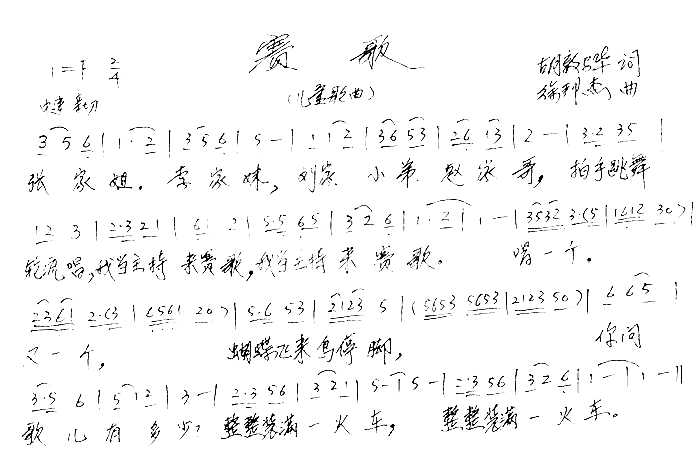 赛歌
1=F 2/4
(儿童歌曲)
胡敦骅 词
徐邦杰 曲
3 5 6 | 1· 2 | 3 5 6 | 5 - | 1 1 2 | 36 53 | 26 13 | 2 - | 3·2 35 |
张家姐,李家妹,刘家小弟赵家哥,拍手跳舞
12 3 | 2·3 21 | 6 2 | 5·5 65 | 32 6 | 1· 2 | 1 - | 3532 3·(5 | 1612 30) |
轮流唱,我当主持来赛歌,我当主持来赛歌。唱一个,
2361 2·(3 | 6561 20) | 5·6 53 | 2123 5 | (5653 5653 | 2123 50) | 6 65 |
又一个,蝴蝶飞来鸟停脚,你问
3·5 6 | 5 12 | 3 - | 2·3 56 | 321 | 5 - | 5 - | 2·3 56 | 32 6 | 1 - | 1 - ||
歌儿有多少?整整装满一火车,整整装满一火车。